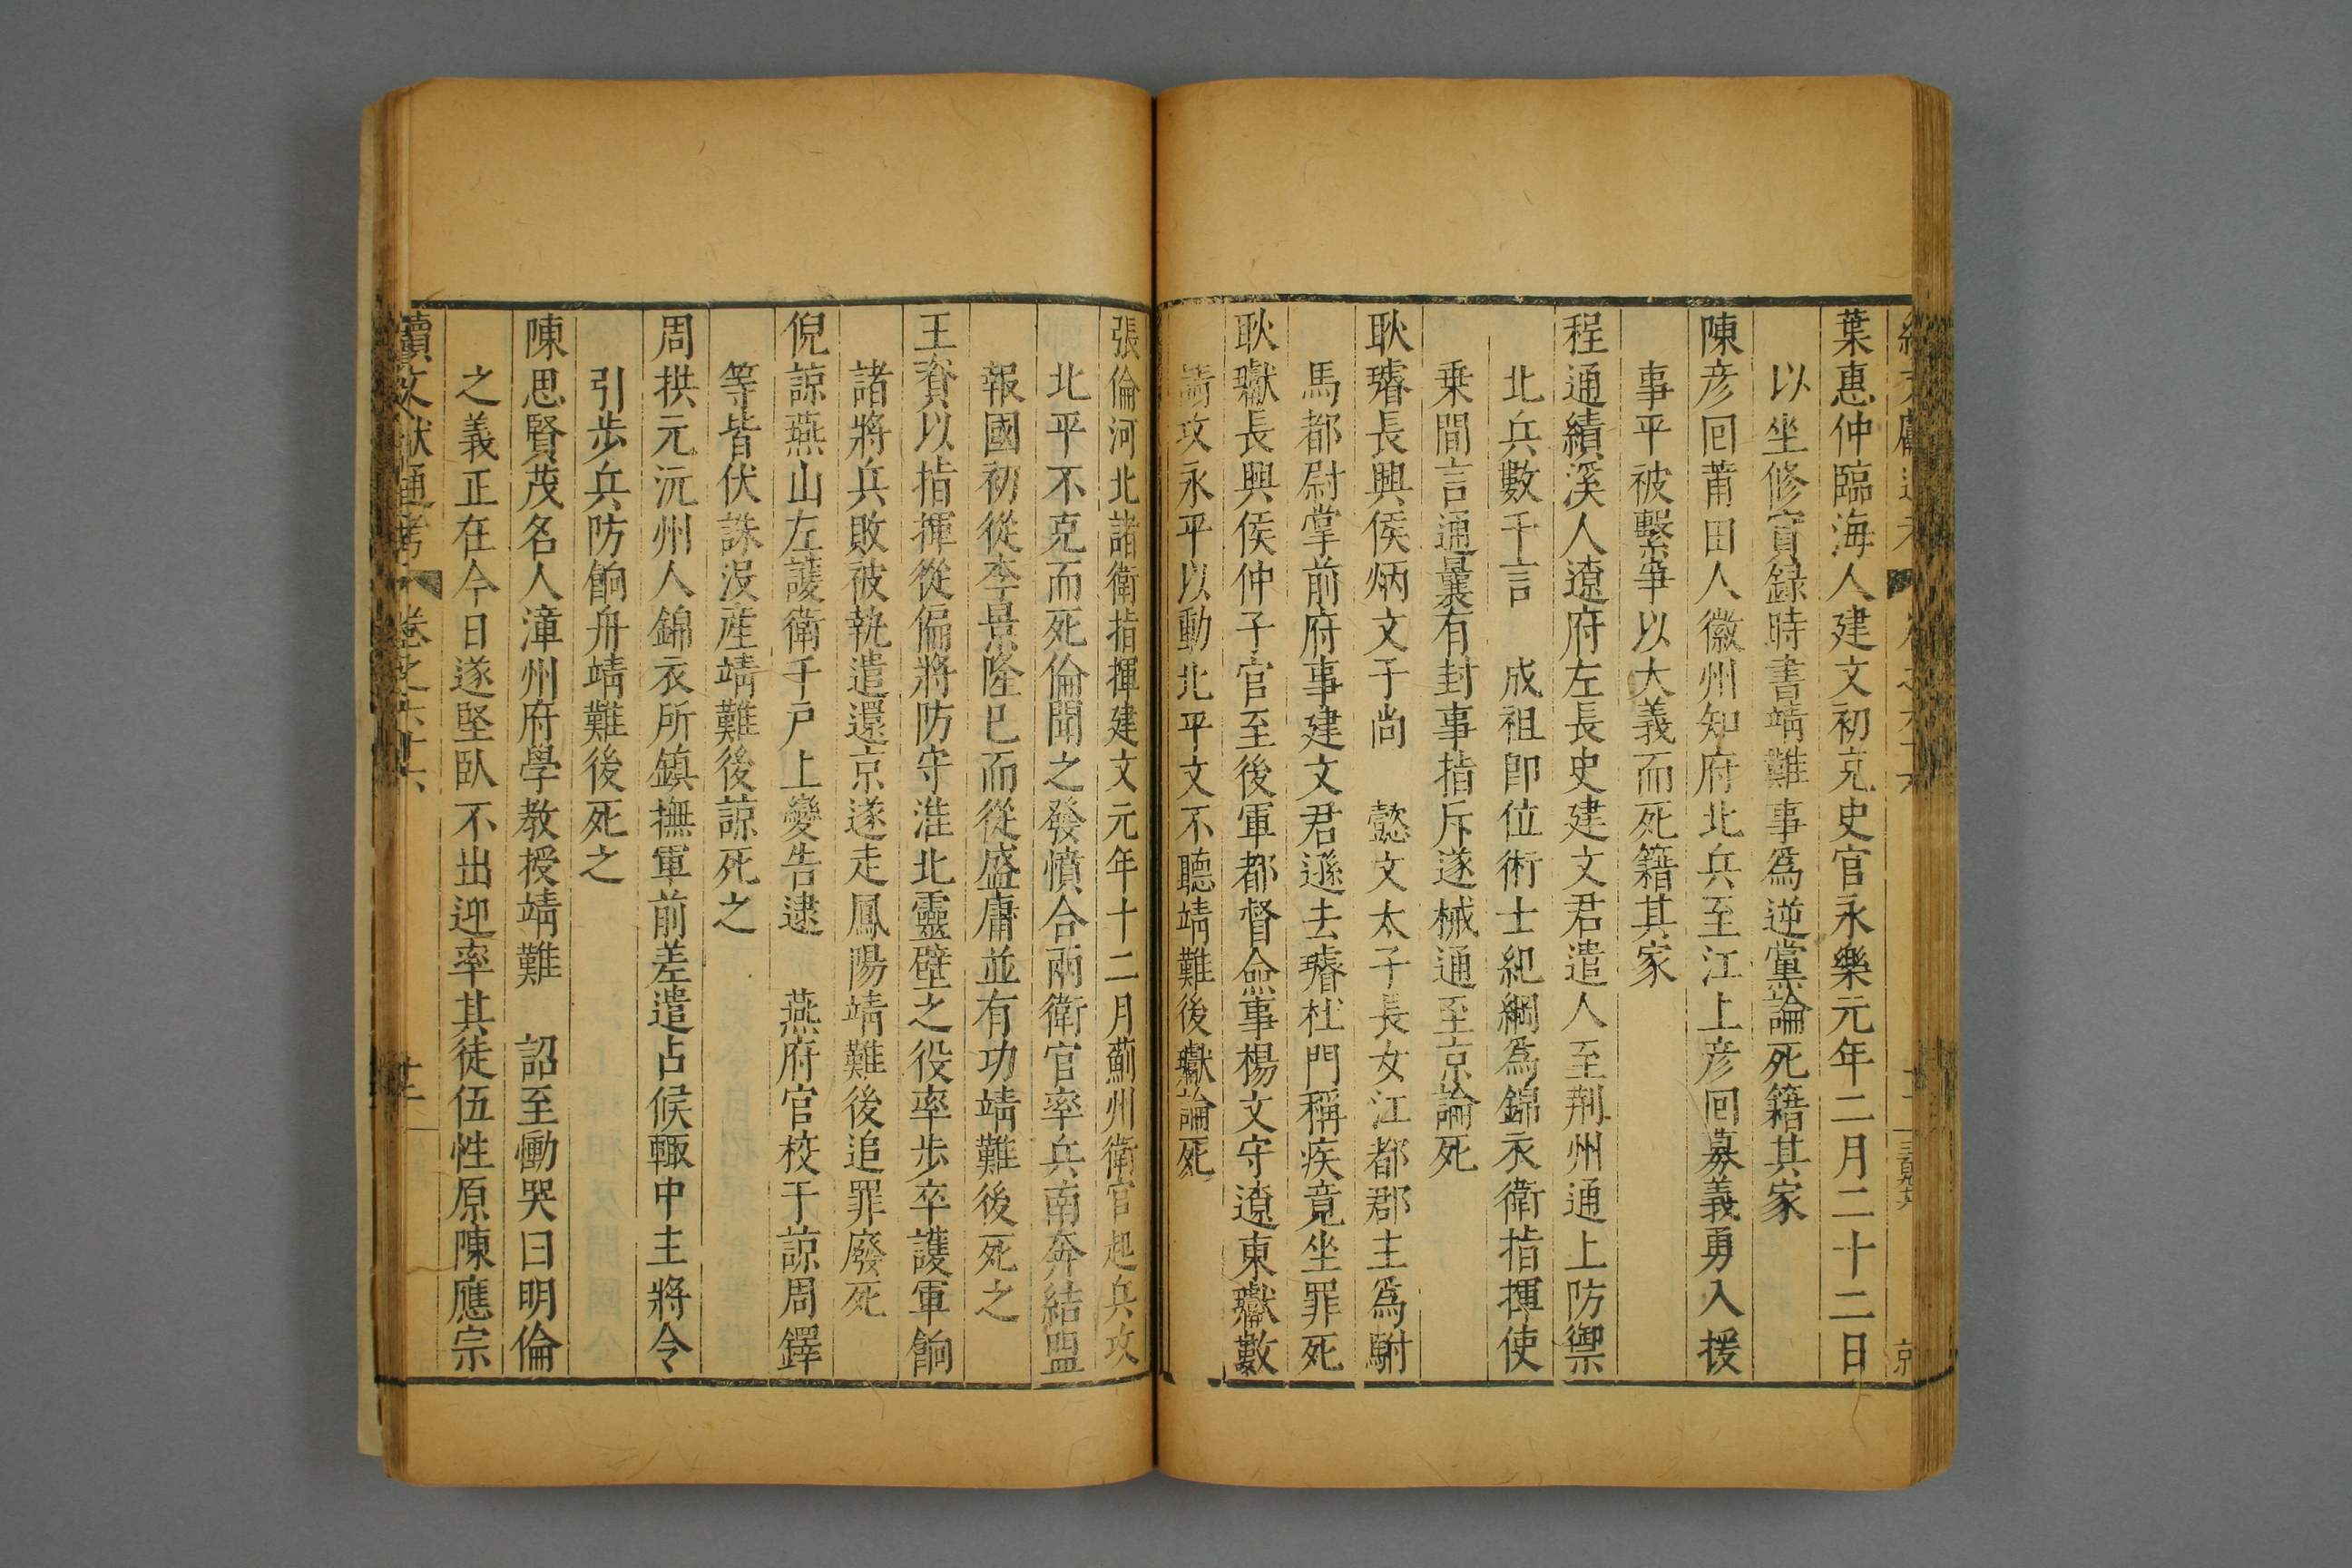 葉惠仲臨海人建文初克史官永樂元年二月二十二日
以坐修實録時書靖難事爲逆黨論死籍其家
陳彦囘莆田人徽州知府北兵至江上彦回募義勇入援
事平被繫寃以大義而死籍其家
程通績溪人遼府左長史建文君遣人至荆州通上防禦
北兵數千言　成祖卽位術士紀綱爲錦衣衛指揮使
乗間言通曩有封事指斥遂械通至京論死
耿璿長興侯炳文子尚　懿文太子長女江都郡主爲駙
馬都尉掌前府事建文君遜去璿杜門稱疾竟坐罪死
耿瓛長興侯仲子官至後軍都督僉事楊文守遼東瓛數
請攻永平以動北平文不聽靖難後瓛論死
張倫河北諸衛指揮建文元年十二月薊州衛官起兵攻
北平不克而死倫聞之發憤合兩衛官率兵南奔結盟
報國初從李景隆已而從盛庸並有功靖難後死之
王資以指揮從偏將防守淮北靈壁之役率步卒護軍餉
諸將兵敗被執遣還京遂走鳳陽靖難後追罪廢死
倪諒燕山左護衛千戸上變告逮　燕府官校于諒周鐸
等皆伏誅沒産靖難後諒死之
周拱元沅州人錦衣所鎮撫軍前差遣占候輒中主將令
引步兵防餉舟靖難後死之
陳思賢茂名人漳州府學教授靖難　詔至慟哭曰明倫
之義正在今日遂堅臥不出迎率其徒伍性原陳應宗
續文獻通考　卷之六十六